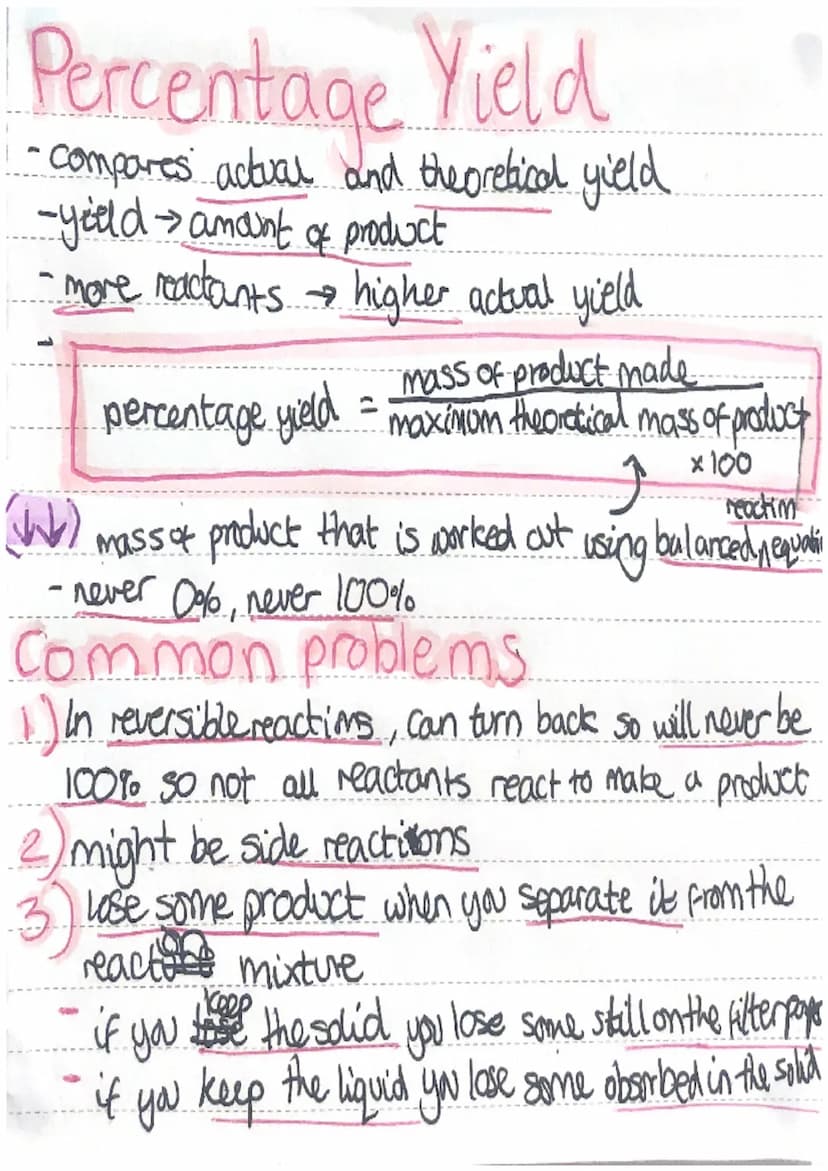 Percentage Yield
- compares actual and theoretical yield
- yield → amount of product
- more reactants → higher actual yield
-
percentage yield = mass of product made
maximum theoretical mass of product
x 100
reaction
(↓↓) mass of product that is worked out using balanced equati
- never 0%, never 100%
Common problems
1) In reversible reactions, can turn back so will never be
100% so not all reactants react to make a product
2) might be side reactions
3) lose some product when you separate it from the
reaction mixture
- if you keep the solid you lose some still on the filter paper
- if you keep the liquid you lose some absorbed in the solid